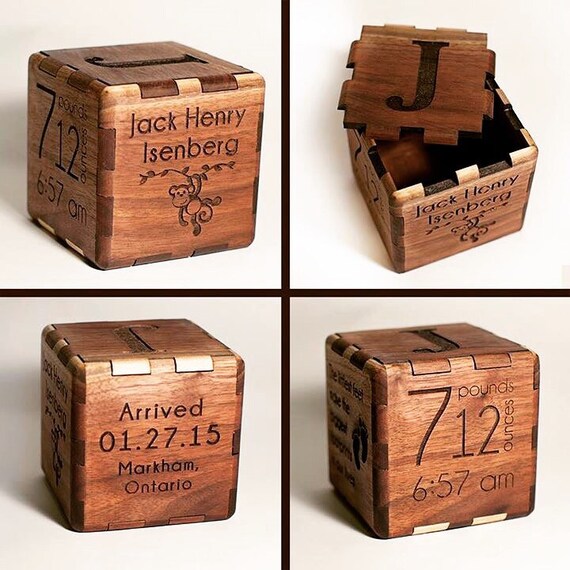 J
7
pounds
12
ounces
6:57 am
Jack Henry
Isenberg
J
Jack Henry
Isenberg
J
Jack Henry
Isenberg
Arrived
01.27.15
Markham,
Ontario
J
The littlest feet
make the
biggest
footprints
in our
7
pounds
12
ounces
6:57 am